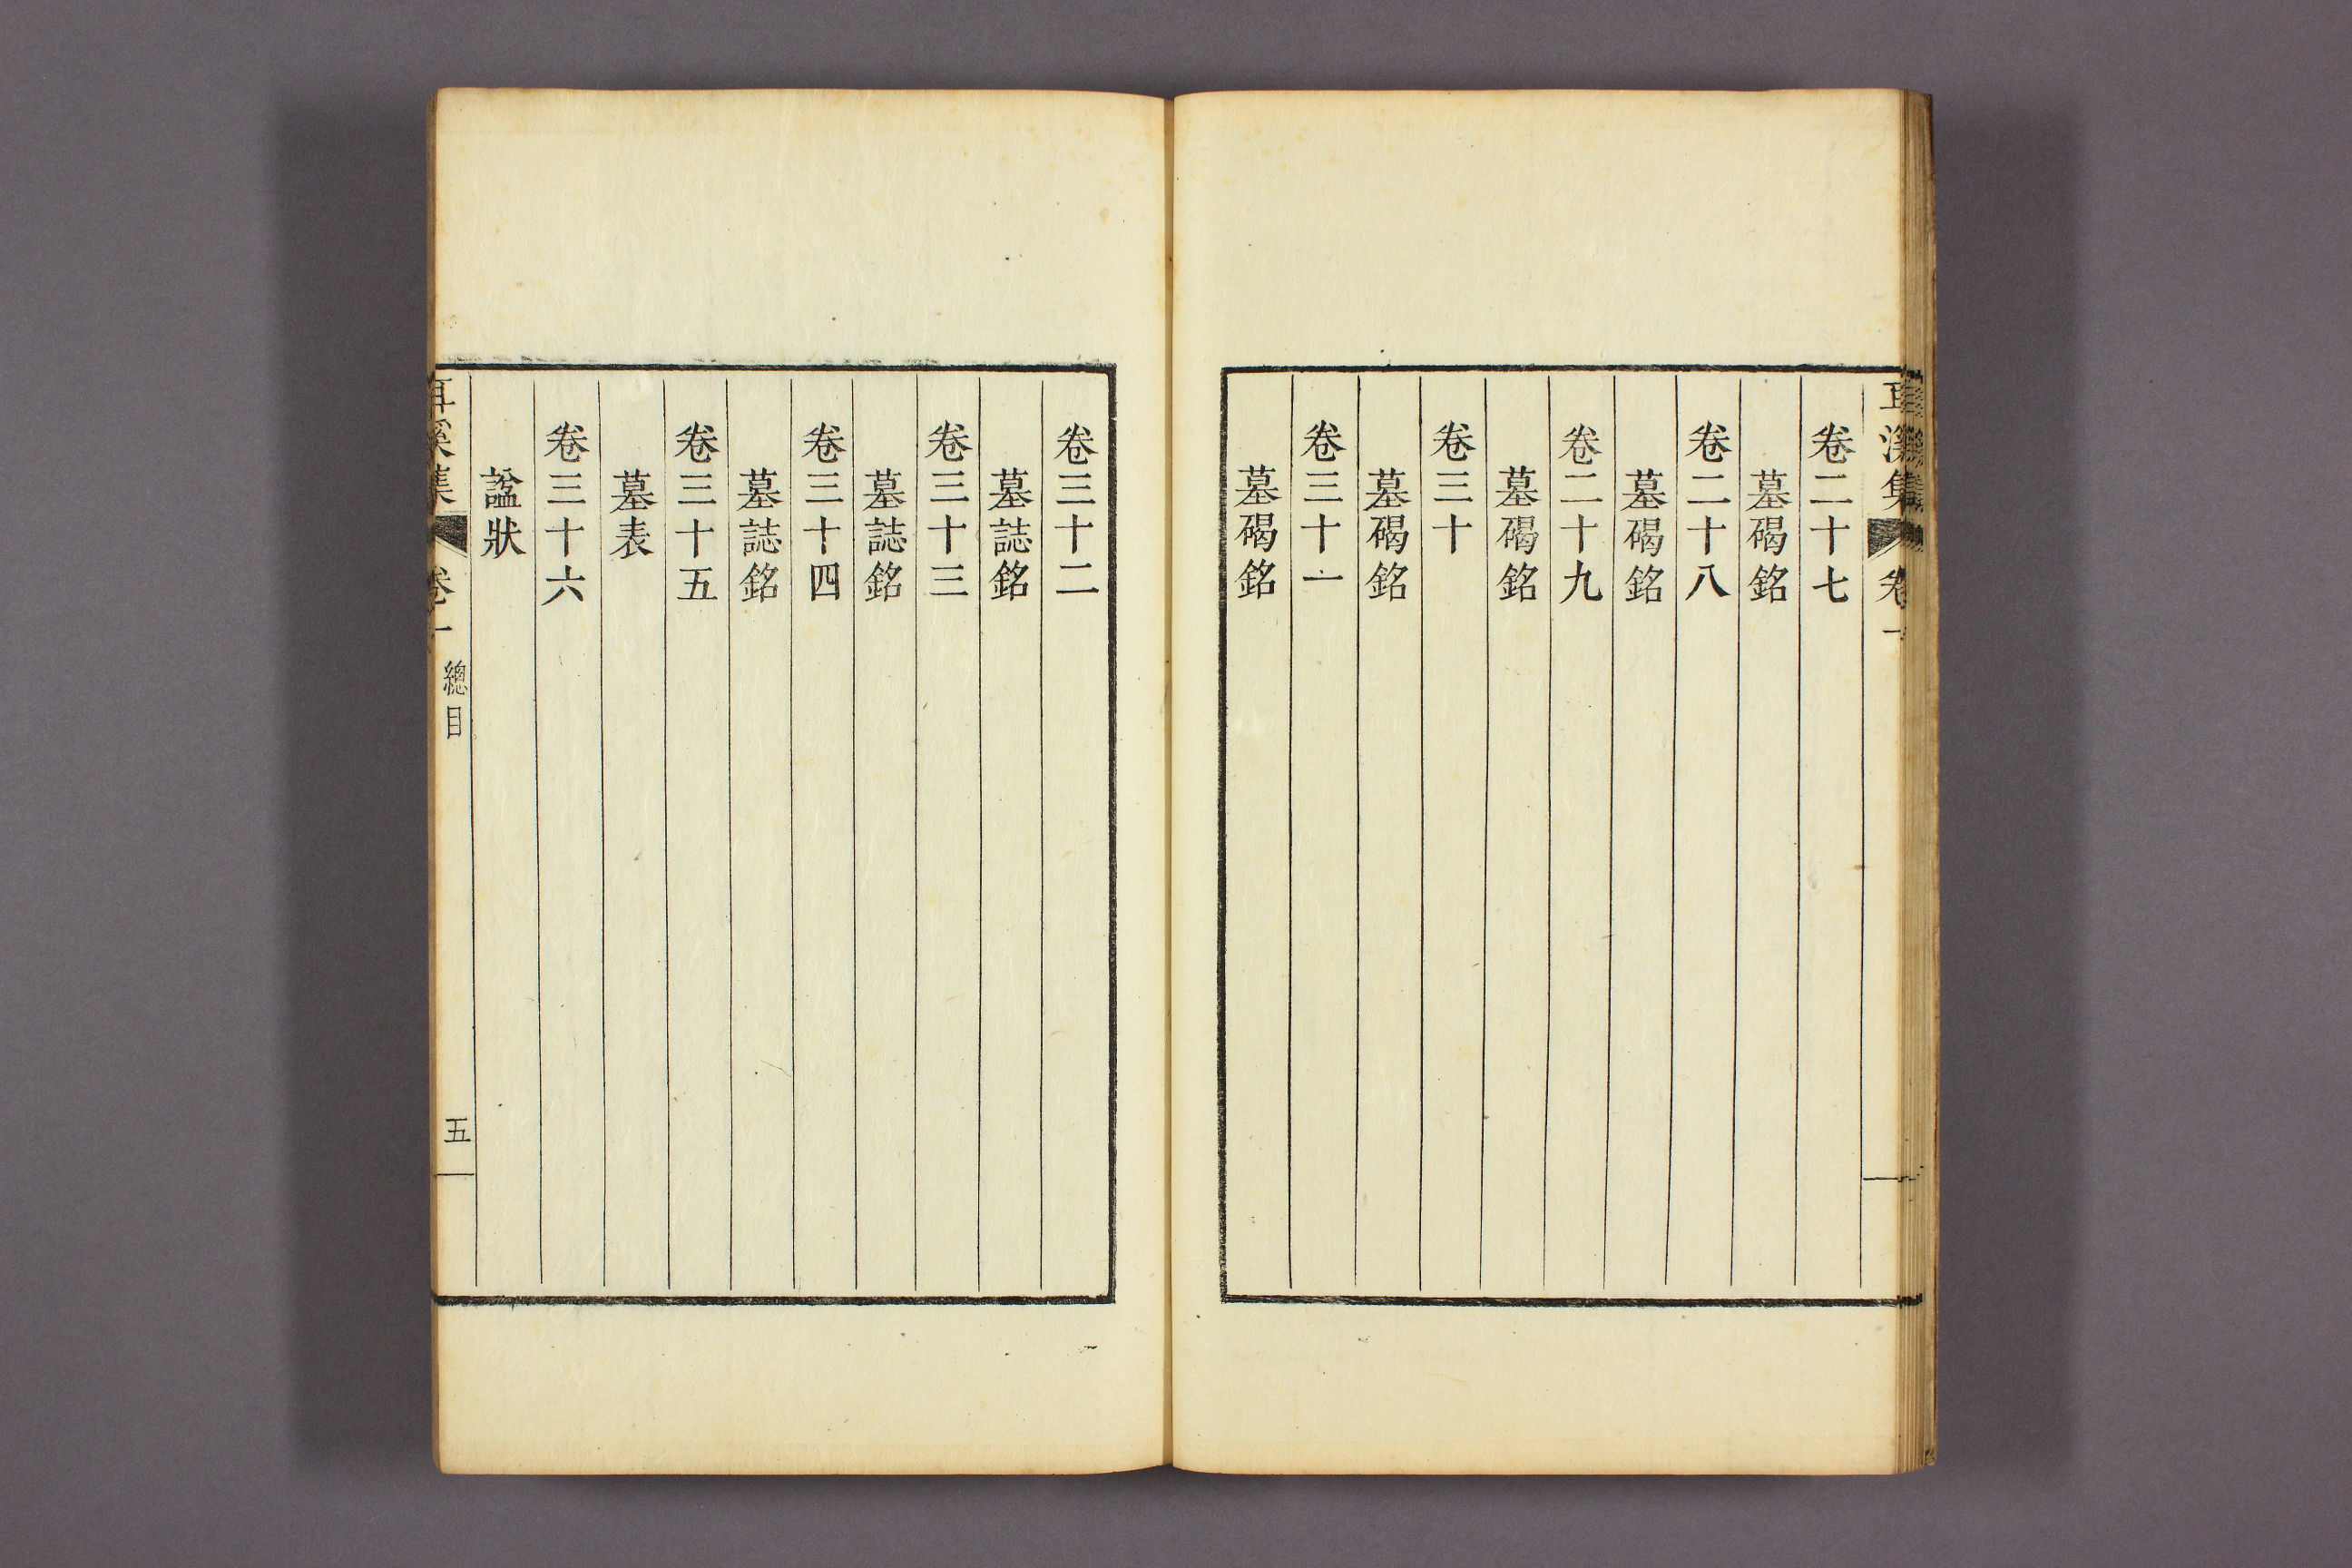 耳溪集 卷一
卷二十七
墓碣銘
卷二十八
墓碣銘
卷二十九
墓碣銘
卷三十
墓碣銘
卷三十一
墓碣銘
卷三十二
墓誌銘
卷三十三
墓誌銘
卷三十四
墓誌銘
卷三十五
墓表
卷三十六
諡狀
耳溪集 卷一 總目 五